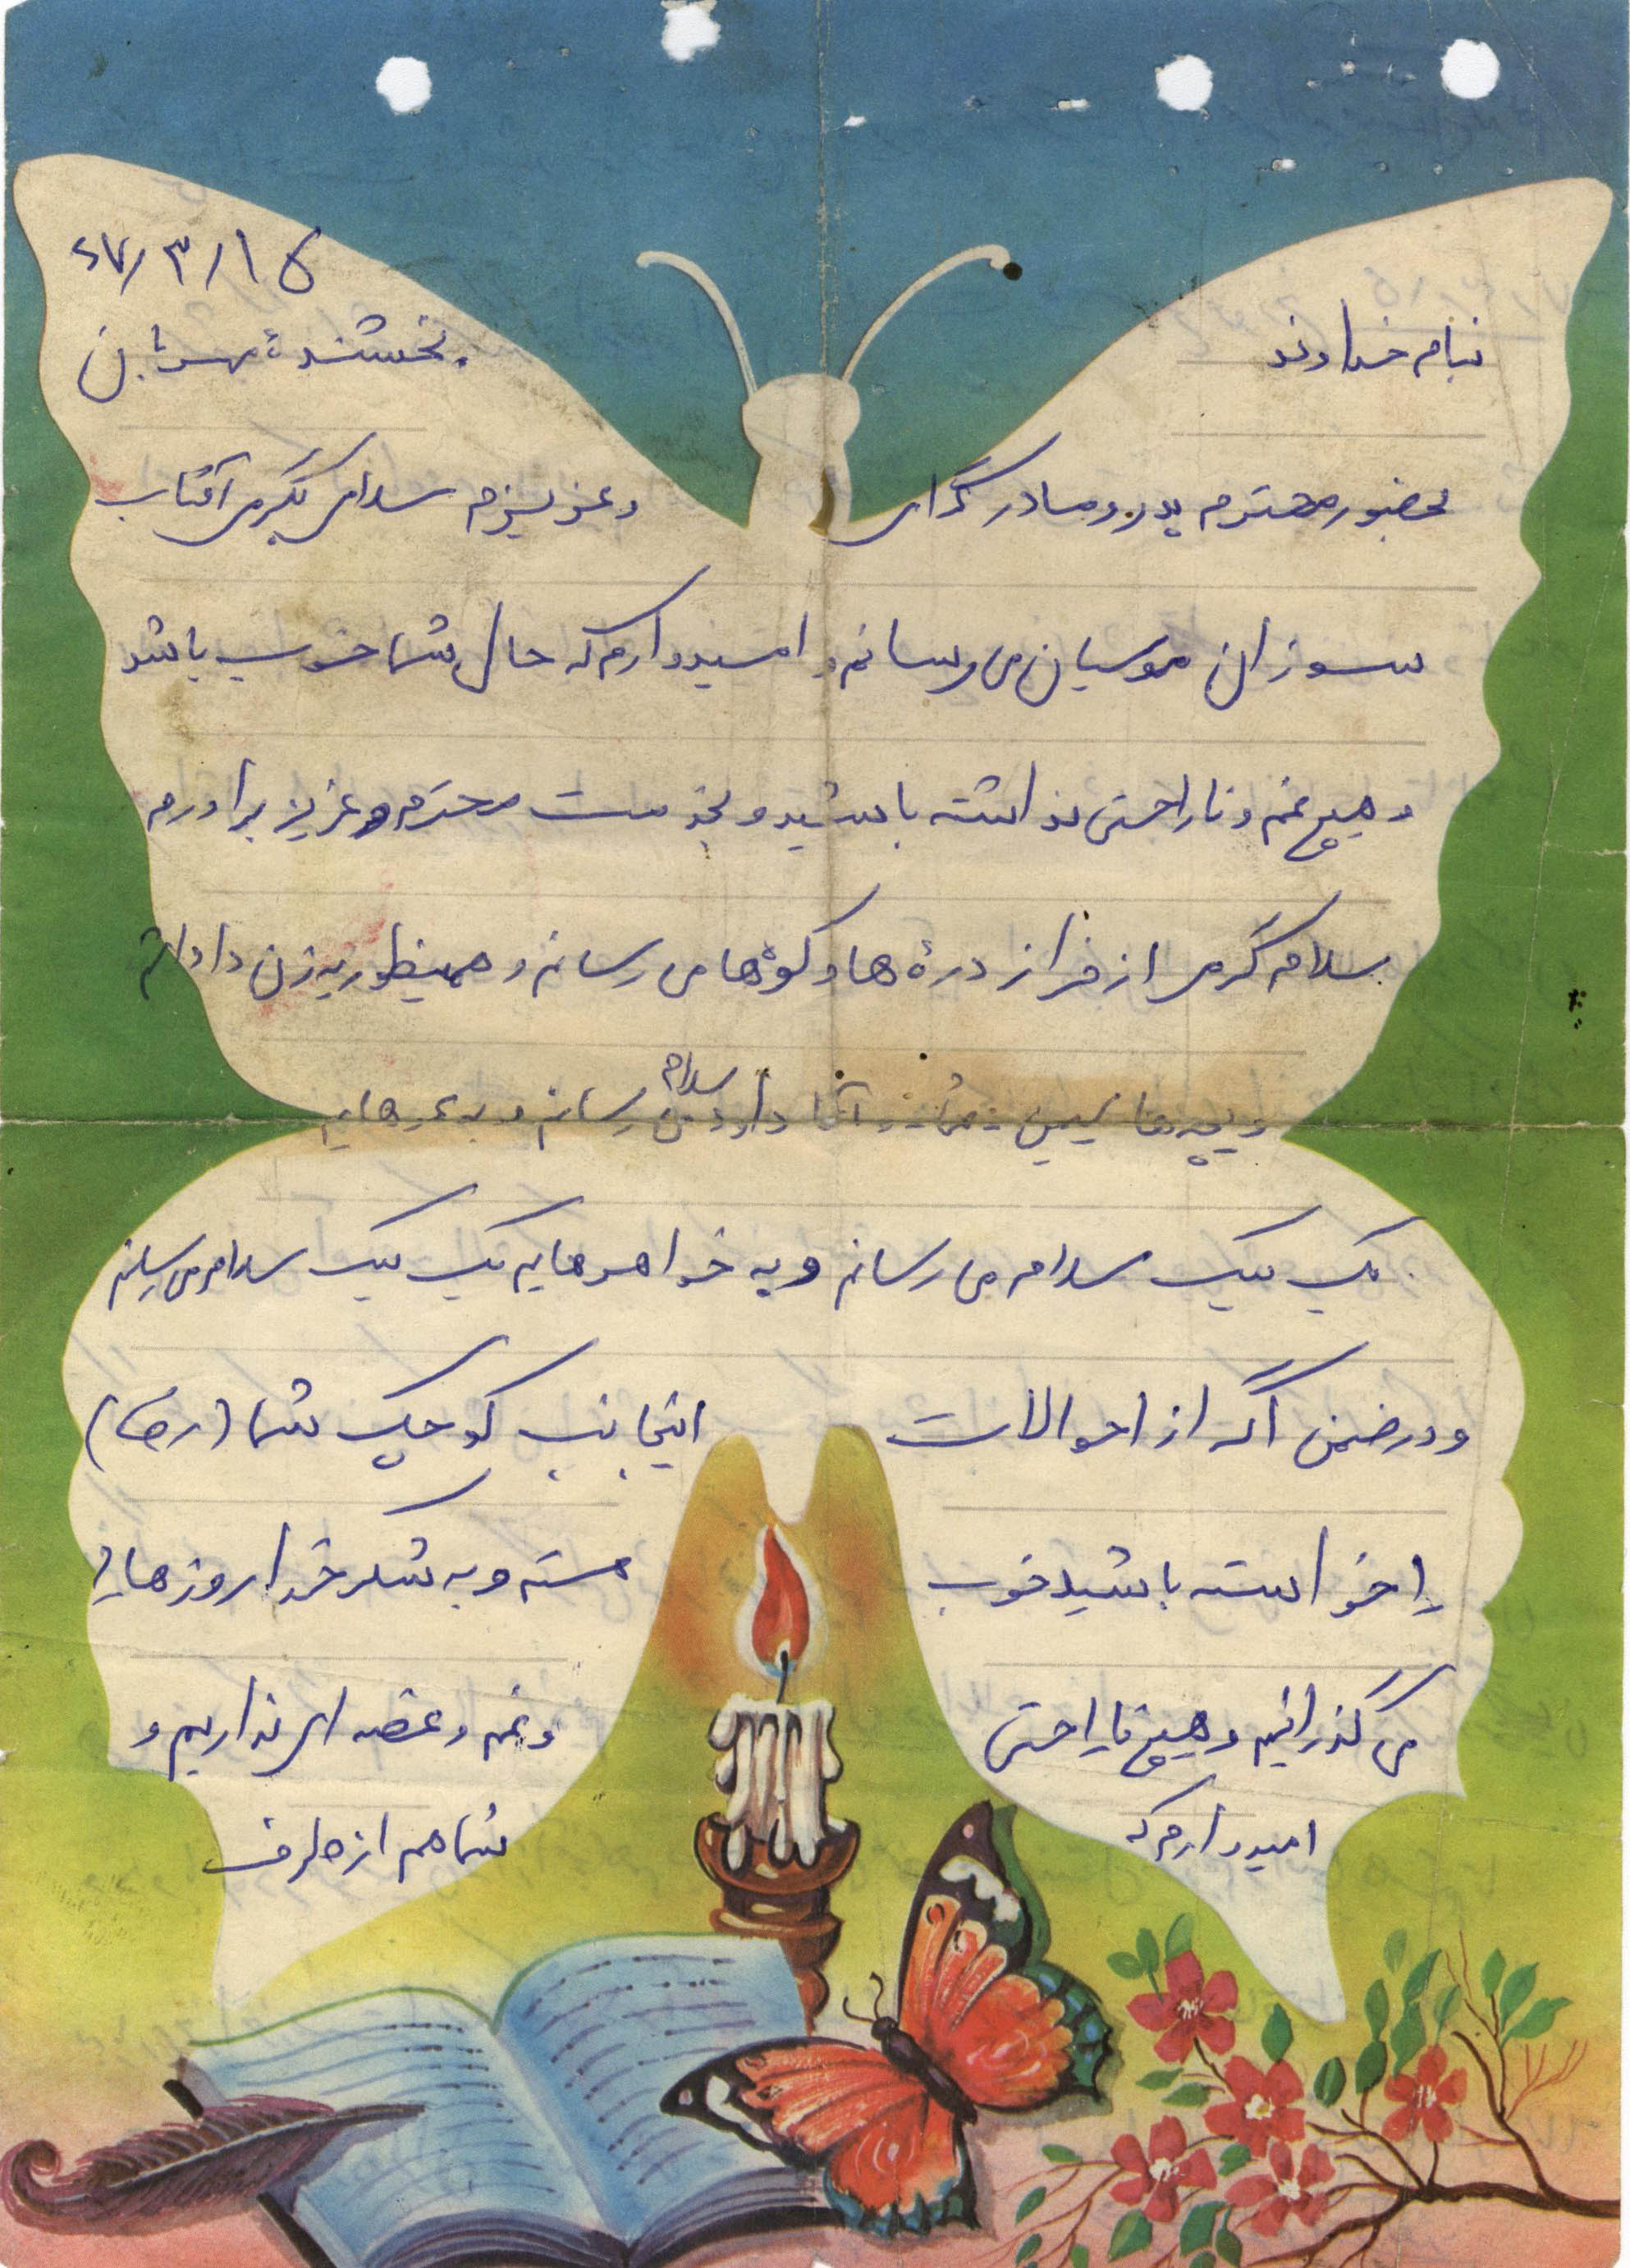 ۶۷/۳/۱۵
بنام خداوند بخشندهٔ مهربان
بحضور محترم پدر و مادر گرامی و عزیزم سلامی بگرمی آفتاب
سوزان موسیان می رسانم و امیدوارم که حال شما خوب باشد
و هیچ غم و ناراحتی نداشته باشید و بخدمت محترم و عزیز برادرم
سلام گرمی از فراز درۀ ها و کوۀ ها می رسانم و همینطور به زن داداشم
و بچه ها و آقا داود سلام می رسانم و به
یک یک سلام می رسانم و به خواهرهایم یک یک سلام می رسانم
و در ضمن اگر از احوالات اینجانب کوچک شما (رضا)
را خواسته باشید خوب هستم و به شکر خدا روزها را
می گذرانیم و هیچ ناراحتی و غم و غصه ای نداریم و
امیدوارم که شما هم از طرف